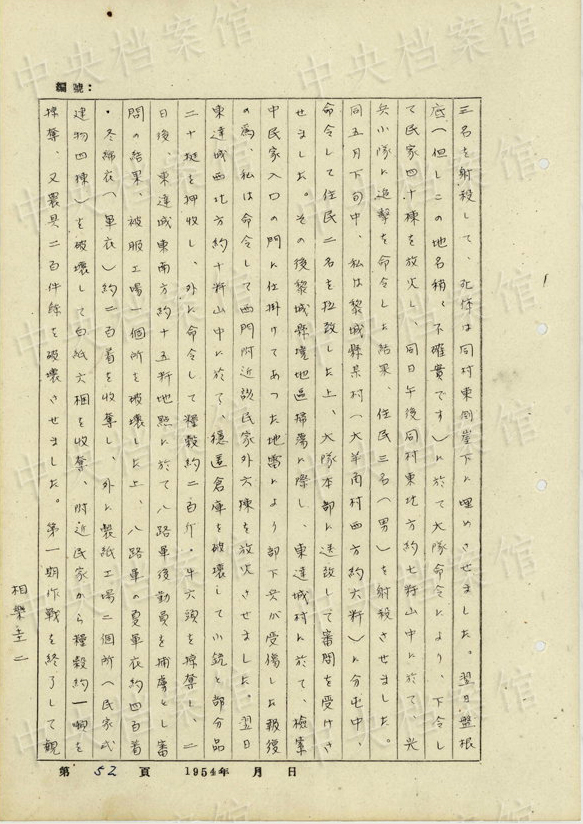 編號：
三名を射殺して、死体は同村東側崖下に埋めさせました。翌日盤根
底（但しこの地名稍々不確実です）に於て大隊命令により、下令し
て民家四十棟を放火し、同日午後同村東北方約七粁山中に於て、兵
小隊に追撃を命令した結果、住民三名（男）を射殺させました。
同五月下旬中、私は黎城縣某村（大羊角村西方約六粁）に分屯中、
命令して住民二名を拉致した上、大隊本部に送致して審問を受けさ
せました。その後黎城縣境地區掃蕩に際し、東達城村に於て、検索
中民家入口の門に仕掛けてあった地雷により部下兵が受傷した報復
の為、私は命令して西門附近該民家外六棟を放火させました。翌日
東達城西北方約十粁山中に於て、隱匿倉庫を破壊して小銃と部分品
二十挺を押收し、外に命令して糧穀約二百斤・牛六頭を掠奪し、二
日後東達城東南方約十五粁地點に於て八路軍後勤員を捕虜とし審
問の結果、被服工場一個所を破壊した上、八路軍の夏軍衣約四百着
・冬綿衣（軍衣）約二百着を收奪し、外に製紙工場二個所（民家式
建物四棟）を破壊して白紙六梱を收奪、附近民家から糧穀約一噸を
掠奪、又農具二百件餘を破壊させました。第一期作戰を終了して観
相樂圭二
第 52 頁 1954年 月 日
中央档案馆